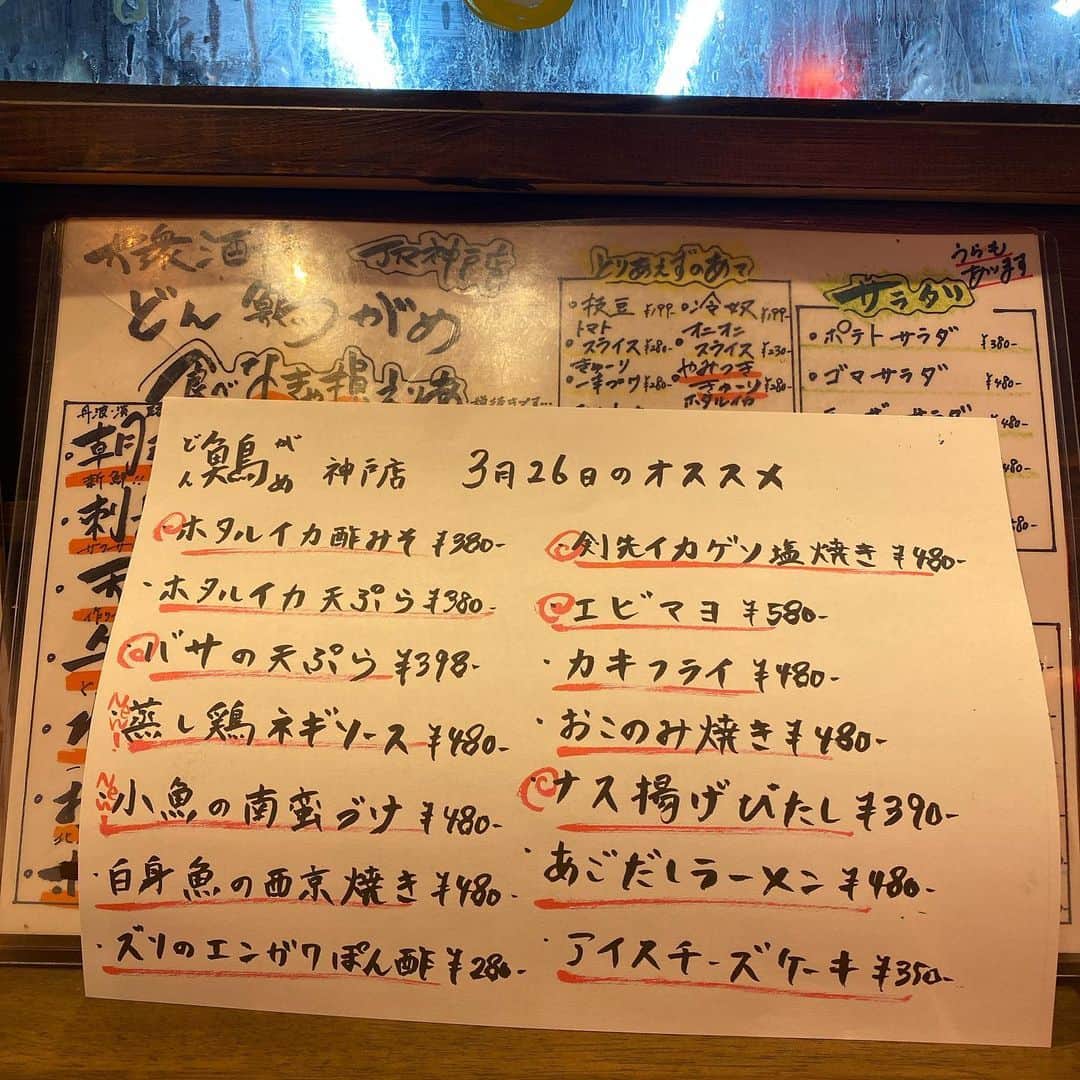 大衆酒
JR神戸店
どん鶏がめ
とりあえずのあて
・枝豆 ¥199-
・冷奴 ¥199-
トマト
・スライス ¥280-
オニオン
・スライス ¥230-
きゅーり
・一本づけ ¥280-
・やみつき
きゅーり ¥280-
ホタルイカ
うらも
あります
サラダ
・ポテトサラダ ¥380-
・ゴマサラダ ¥480-
丹波・
新鮮!!
刺
天
どん がめ 神戸店 3月26日のオススメ
・ホタルイカ酢みそ ¥380-
・ホタルイカ天ぷら ¥380-
・バサの天ぷら ¥398-
New! 蒸し鶏ネギソース ¥480-
New! 小魚の南蛮づけ ¥480-
・白身魚の西京焼き ¥480-
・ズリのエンガワぽん酢 ¥280-
・剣先イカゲソ塩焼き ¥480-
・エビマヨ ¥580-
・カキフライ ¥480-
・おこのみ焼き ¥480-
・ナス揚げびたし ¥390-
・あごだしラーメン ¥480-
・アイスチーズケーキ ¥350-